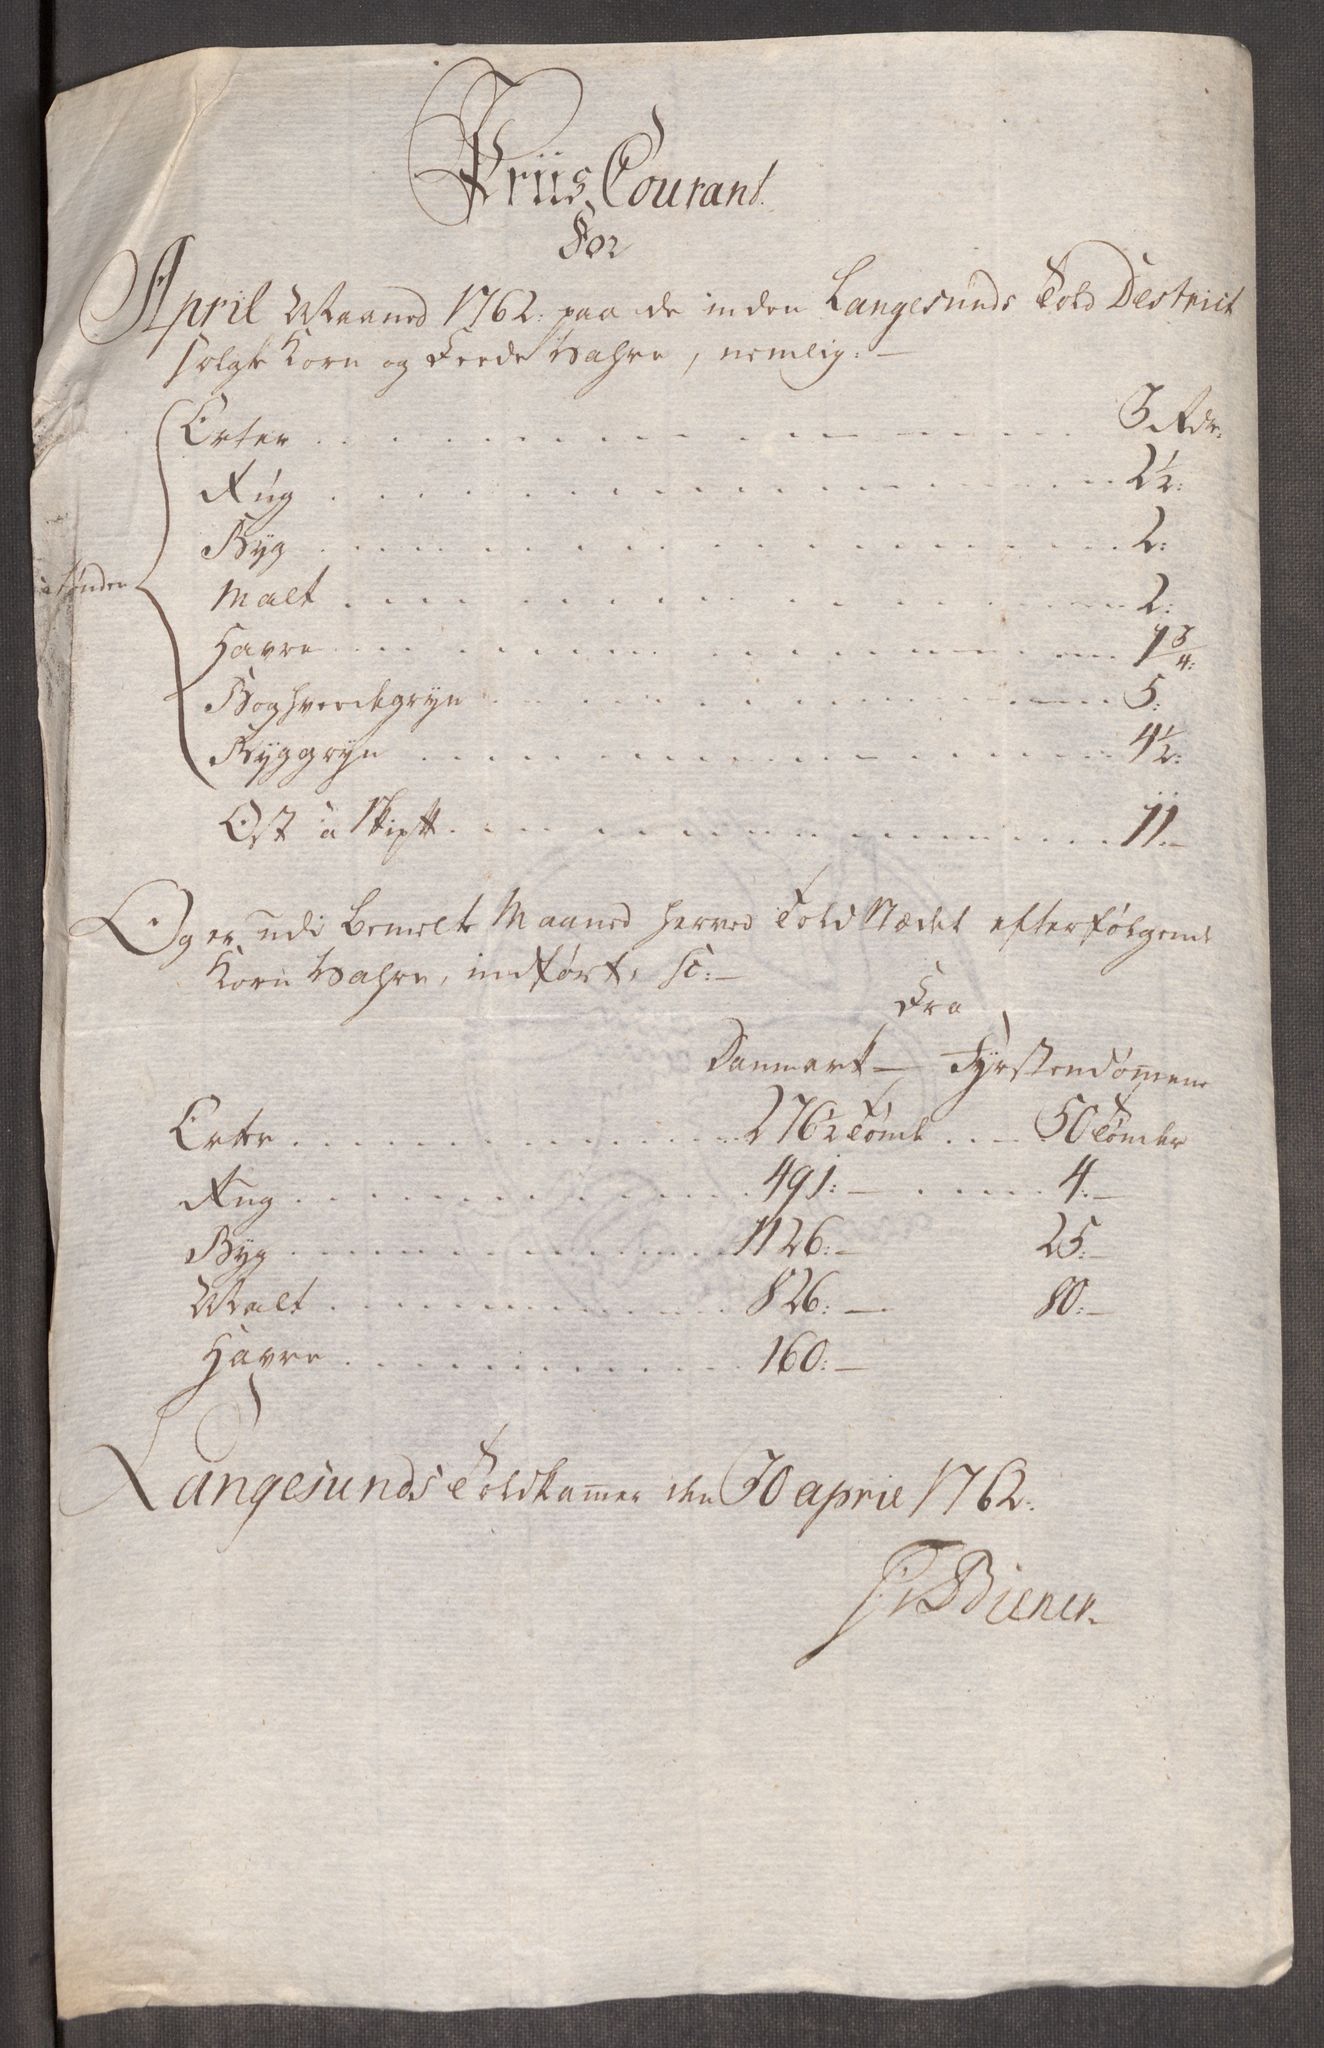 Priis Courant
For
April Maaned 1762. paa de inden Langesunds Told District
solgte Korn og Feede Vahre, nemlig: —
Erter . . . 3 Rdr:
Rug . . . 2 1/2:
Byg . . . 2:
a Tønden
Malt . . . 2:
Havre . . . 1 3/4:
Boghvedegryn . . . 5:
Byggryn . . . 4 1/2:
Ost a Skip℔ . . . 11: —
Og er udi bemelte Maaned herved Told Stædet efterfølgende
Korn Vahre, indført, sc: —
Fra
Danmark — Fyrstendømene
Erter . . . 276 1/2 Tønde . . . 50 Tønder
Rug . . . 491: — . . . 4: —
Byg . . . 1126: — 25: —
Malt . . . 826: — 80: —
Havre . . . 160: —
Langesunds Toldkamer den 30 april 1762:
Biener